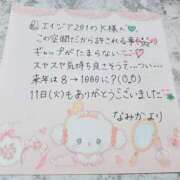 エイジア201のK様♡
この空間だから許される事
ギャップがたまらない〜♡
スヤスヤ気持ち良さそうで……
来年は8→1000に？(○○)
11日(火)もありがとうございました
なみかより